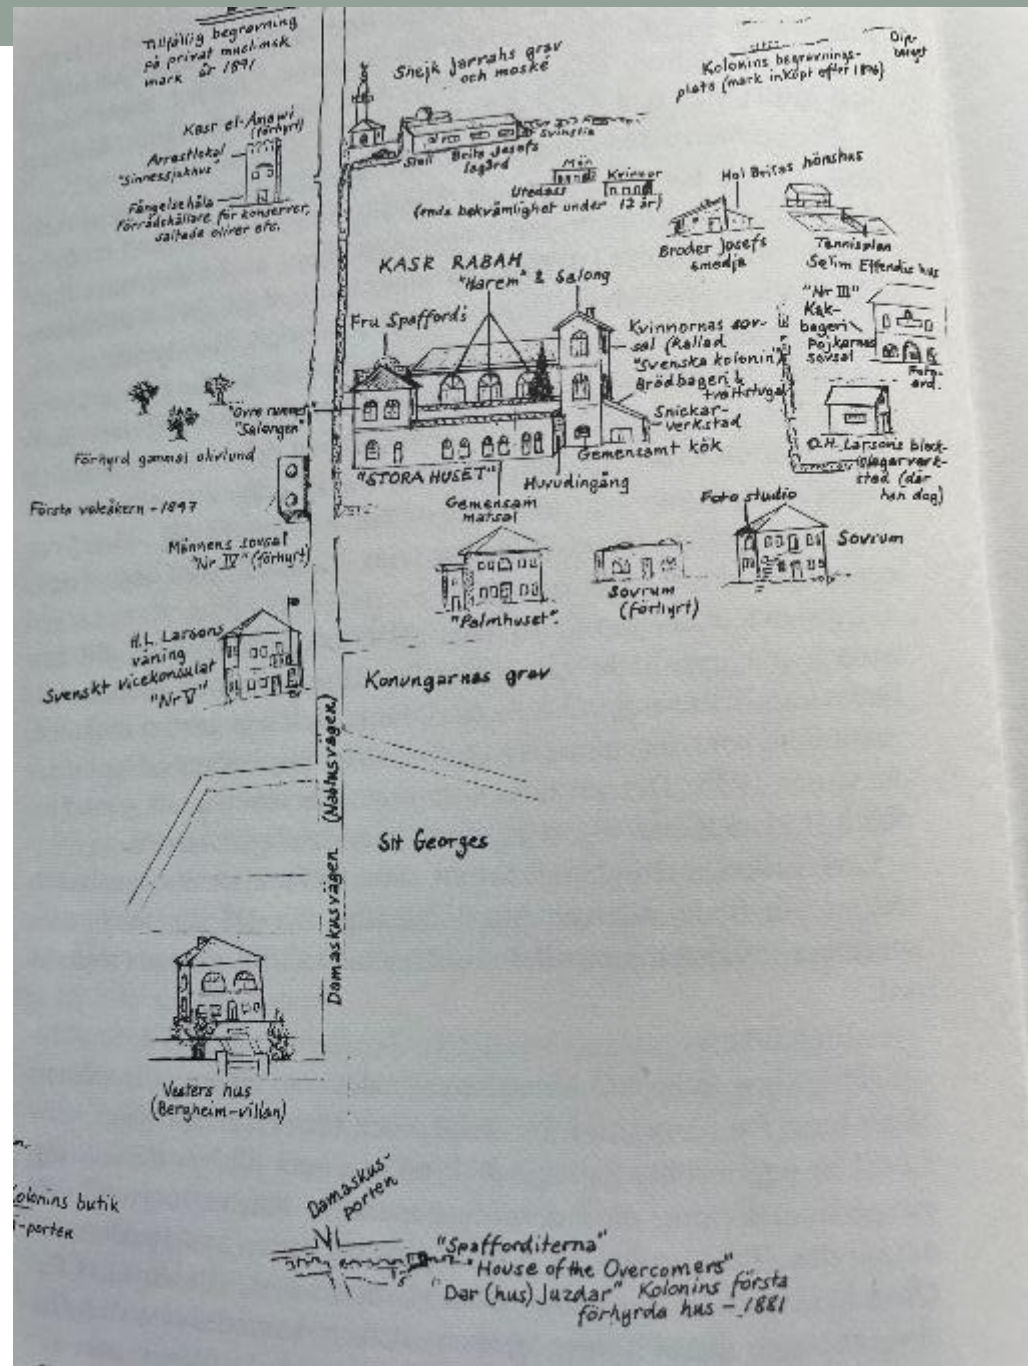 Tillfällig begravning
på privat muslimsk
mark år 1891
Shejk Jarrahs grav
och moské
Kolonins begravnings-
plats (mark inköpt efter 1896)
Kasr el-
(förhyrt)
Arrestlokal
"Sinnessjukhus"
Fängelsehåla
Förrådskällare för konserver,
saltade oliver etc.
Stall
Brita Josefs
lagård
Svinstia
Män
Kvinnor
Utedass
(enda bekvämlighet under 12 år)
Hol Britas hönshus
Broder Josefs
smedja
Tennisplan
Selim Effendis hus
KASR RABAH
"Harem" & Salong
Fru Spaffords
Kvinnornas sov-
sal (kallad
"Svenska kolonin")
Brödbageri &
tvättstuga
Snickar-
verkstad
Gemensamt kök
"Nr III"
Kak-
bageri
Pojkarnas
sovsal
Foto-
avd.
O.H. Larsons bleck-
slagarverk-
stad (där
han dog)
"Övre rummet"
"Salongen"
Förhyrd gammal olivlund
"STORA HUSET"
Huvudingång
Gemensam
matsal
Första
- 1897
Männens sovsal
"Nr IV" (förhyrt)
Foto studio
Sovrum
"Palmhuset".
Sovrum
(förhyrt)
H.L. Larsons
våning
Svenskt vicekonsulat
"Nr V"
Konungarnas grav
Damaskusvägen (Nablusvägen)
S:t Georges
Vesters hus
(Bergheim-villan)
olonins butik
-porten
Damaskus-
porten
"Spafforditerna"
"House of the Overcomers"
"Dar (hus) Juzdar" Kolonins första
förhyrda hus - 1881